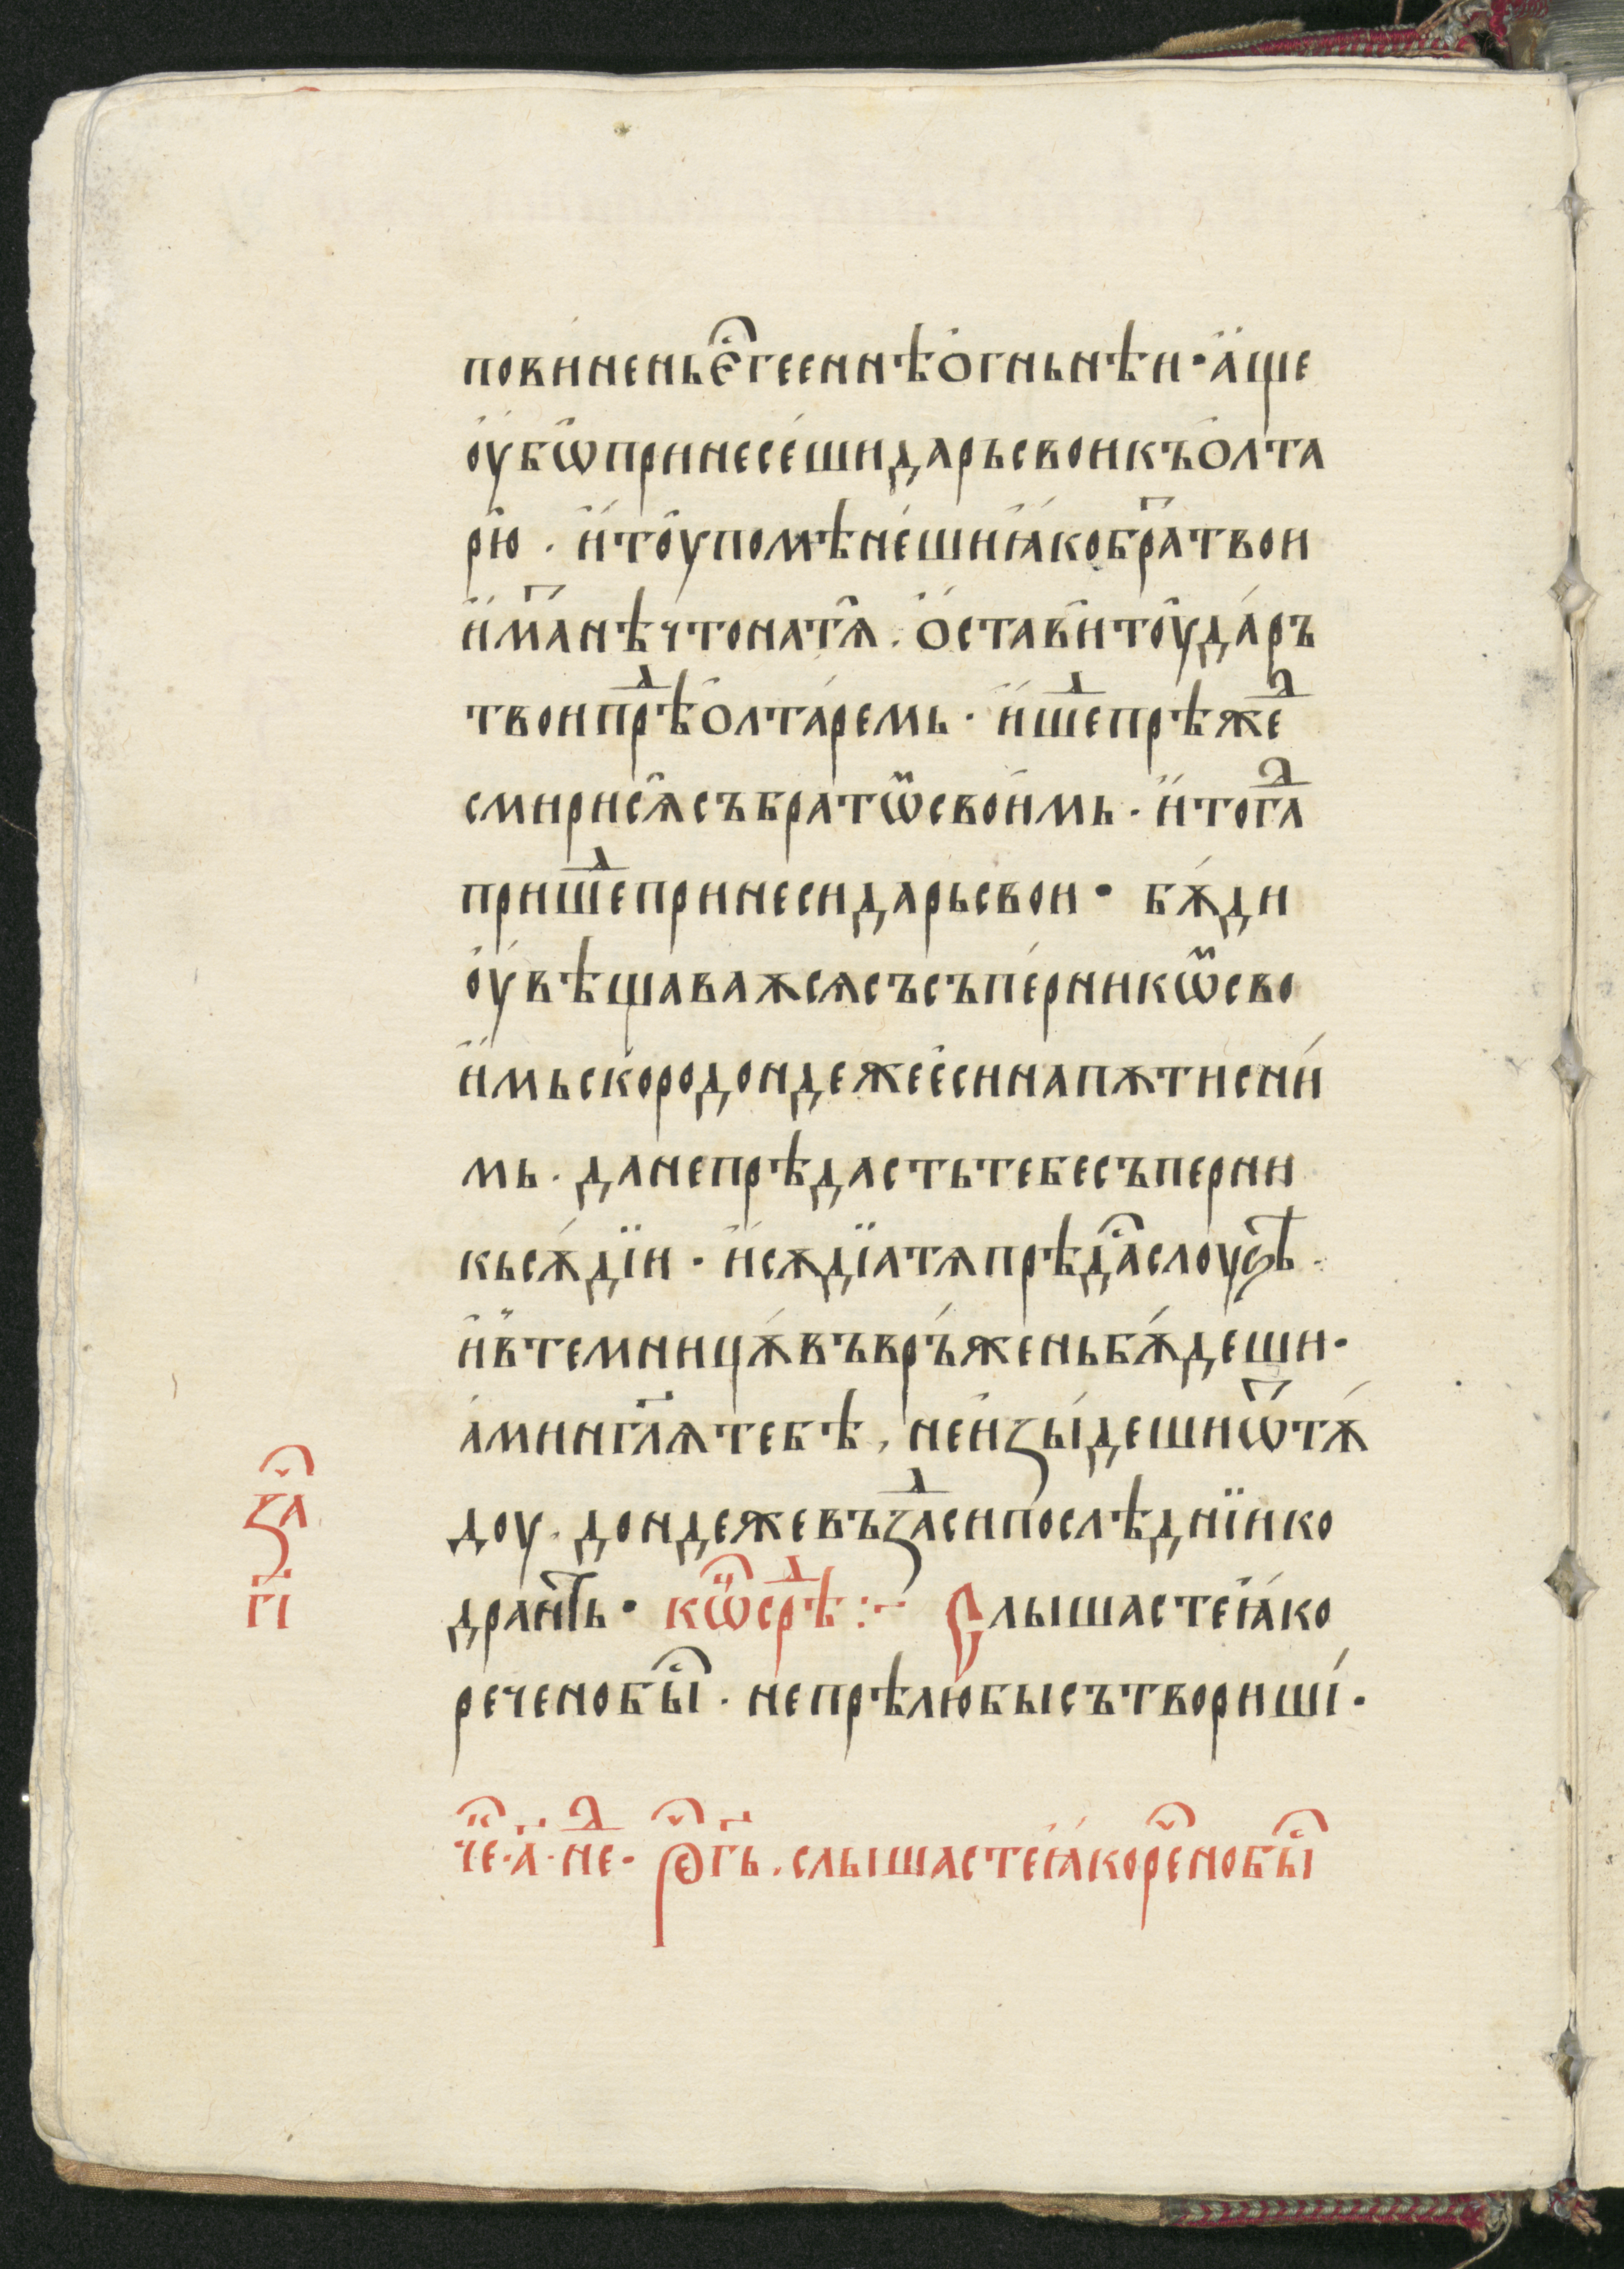 пови́нень є҆с҇ гееннѣ о҆гньнѣи · а҆́ще
оу҆́бѡ҆ принесе́ши дарь свои къ о҆лта
рю҆ · и҆́ тоу҆ помѣне́ши ꙗ҆́ко бра҃ твои
и҆́ма҃ нѣчто на тѧ҆ . о҆ста́ви҆ тоу҆ да́ръ
твои прѣⷣ о҆лта́ремь · и҆́ шеⷣ прѣжеⷣ
смири сѧ҆ съ братѡ҆ⷨ свои́мь · и҆́ тогⷣа
пришеⷣ принеси дарь свои · бѫ́ди
оу҆́вѣщаваѫ сѧ съ съпе́рникѡⷨ сво
и҆́мь ско́ро дондеже е҆си на пѫти с ни́
мь · да не прѣдасть тебе съперни
кь сѫ́дїи · и҆́ сѫдїа тѧ прѣдаⷭ҇ слоуѕѣ ·
и҆ в̾ темницѫ́ въврь́жень бѫ́деши ·
а҆мин гл҃ѧ тебѣ , не и҆зы́деши ѿ тѫ́
доу . дондеже въза́ⷣси послѣднїи ко
дран̾ть · кѡⷩ҇ срѣⷣ :- Слышасте ꙗ҆́ко
речено быⷭ҇ · не прѣлю́бы сътвориши́ ·
заⷱ҇
г҃і
чеⷭ҇ · а҃ · неⷣ · рⷱ҇е г҃ь . слышасте ꙗ҆́ко реⷱ҇но быⷭ҇